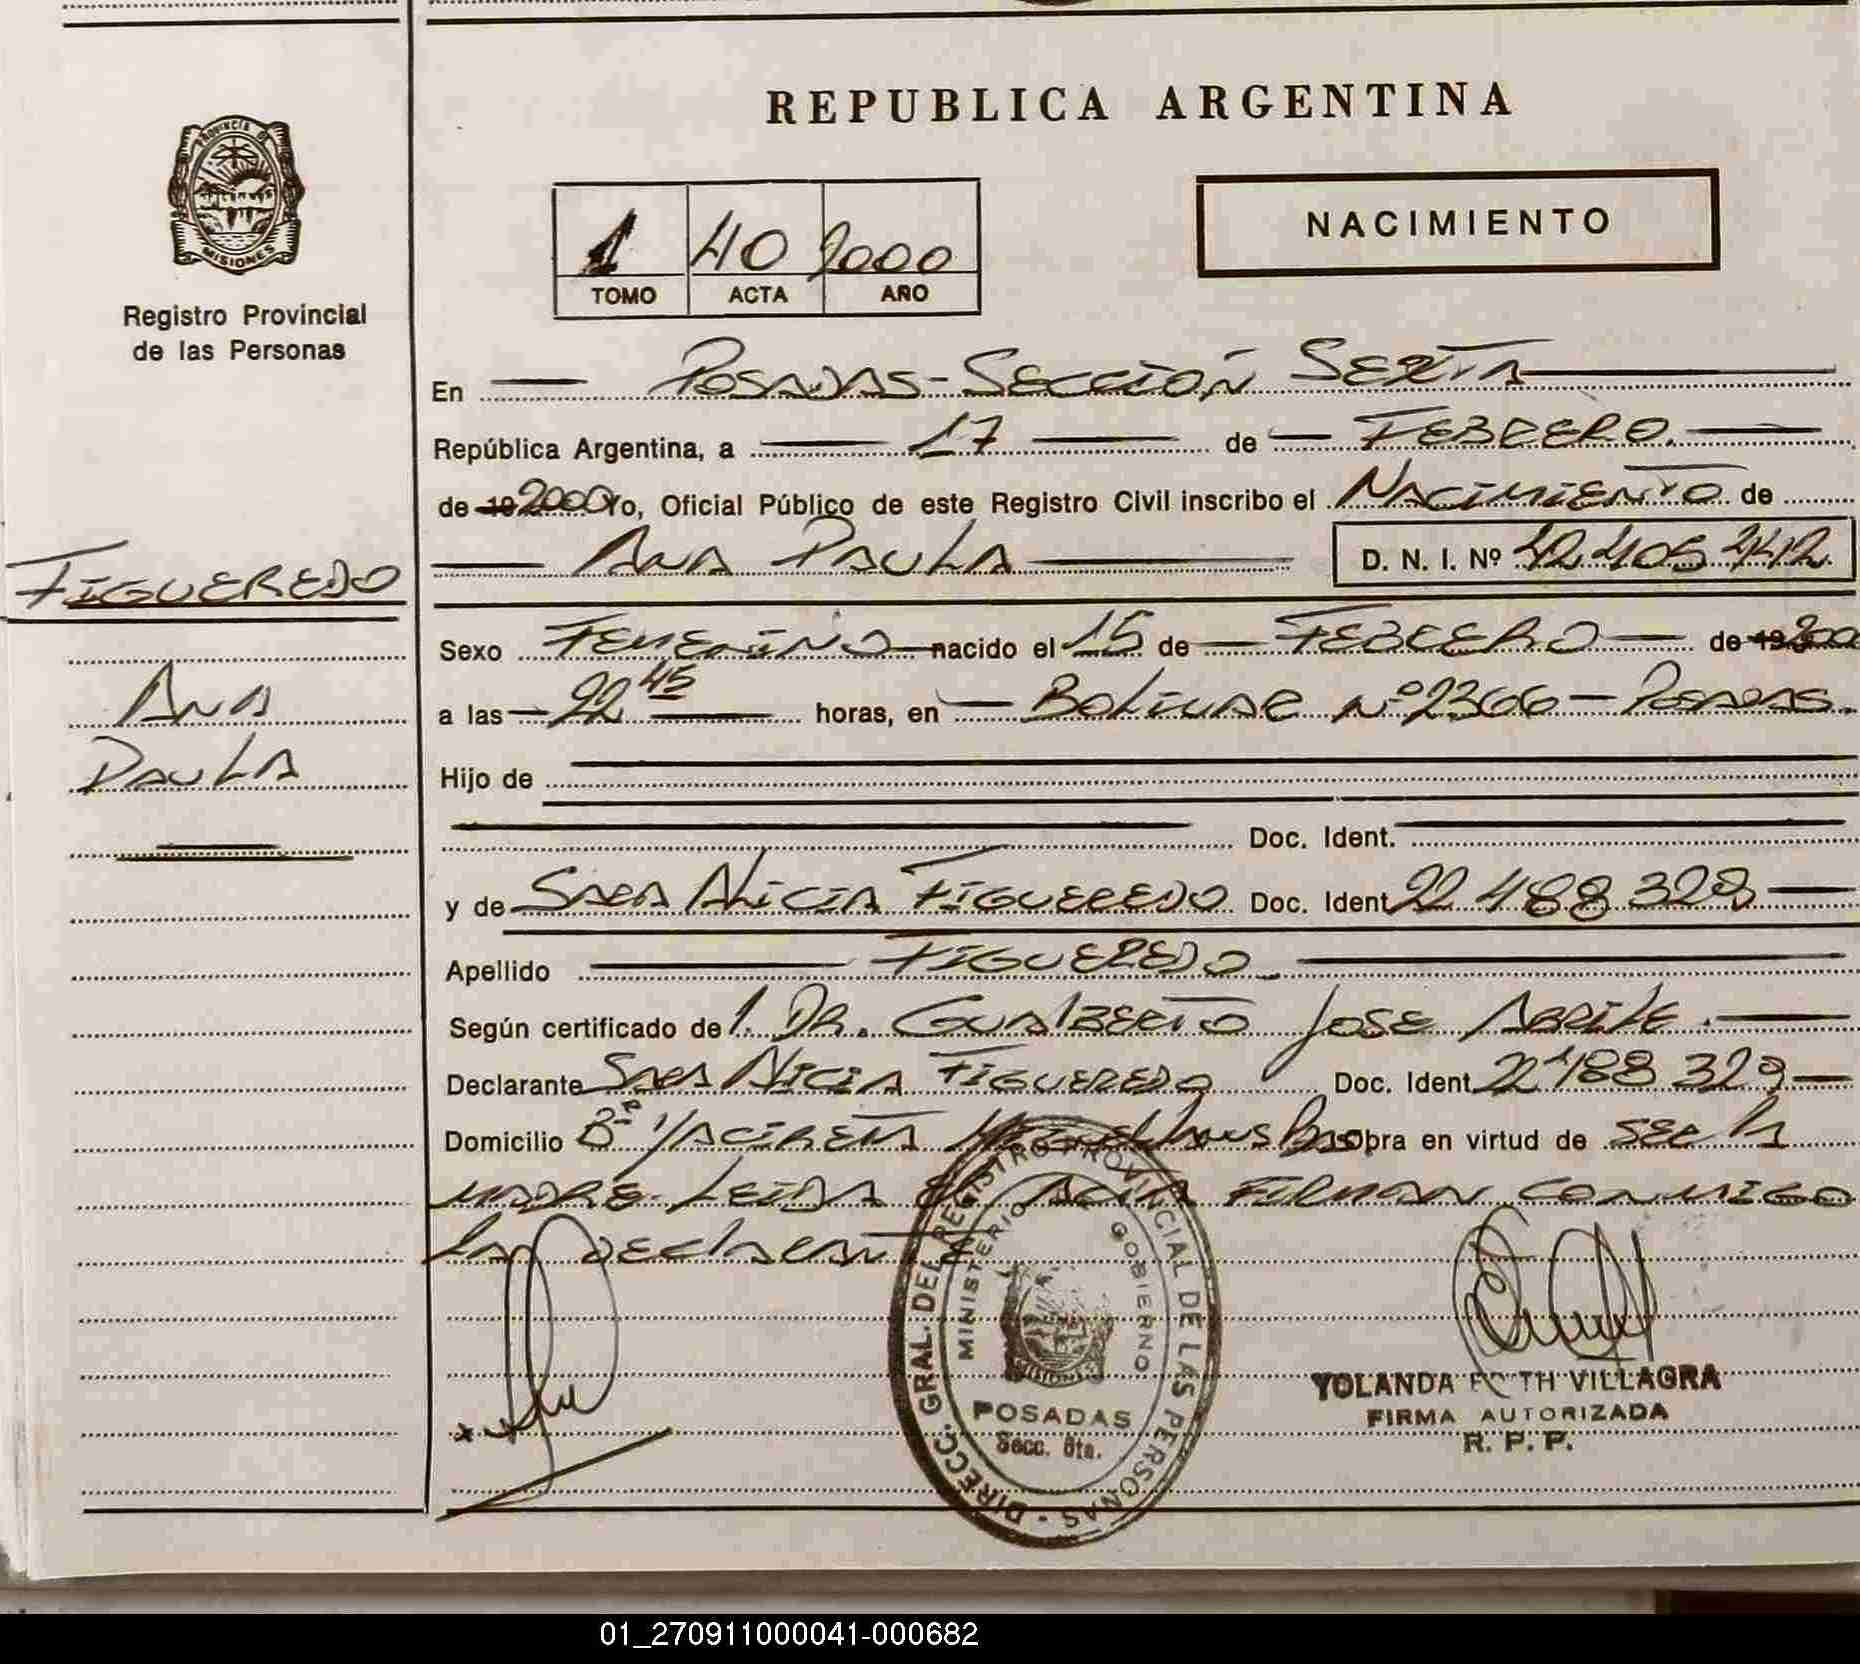 REPUBLICA ARGENTINA
PROVINCIA DE
MISIONES
Registro Provincial
de las Personas
1 40 2000
TOMO ACTA AÑO
NACIMIENTO
FIGUEREDO
ANA
PAULA
En POSADAS - SECCIÓN SEXTA
República Argentina, a 17 de FEBRERO.
de 19 2000 Yo, Oficial Público de este Registro Civil inscribo el NACIMIENTO de
ANA PAULA D. N. I. Nº 42.405.412
Sexo FEMENINO nacido el 15 de FEBRERO de 19 2000
a las 22 45 horas, en BOLIVAR Nº 2366 - POSADAS.
Hijo de
Doc. Ident.
y de SARA ALICIA FIGUEREDO Doc. Ident 22 488 329
Apellido FIGUEREDO.
Según certificado de 1. DR. GUALBERTO JOSE ABRILE.
Declarante SARA ALICIA FIGUEREDO Doc. Ident 22 488 329
Domicilio Bº YACIRETA Obra en virtud de SER LA
MADRE. LEIDA EL ACTA FIRMAN CONMIGO
LA DECLARANTE
DIRECC. GRAL. DEL REGISTRO PROVINCIAL DE LAS PERSONAS
MINISTERIO DE GOBIERNO
MISIONES
POSADAS
Secc. 6ta.
YOLANDA VILLAGRA
FIRMA AUTORIZADA
R. P. P.
01_270911000041-000682